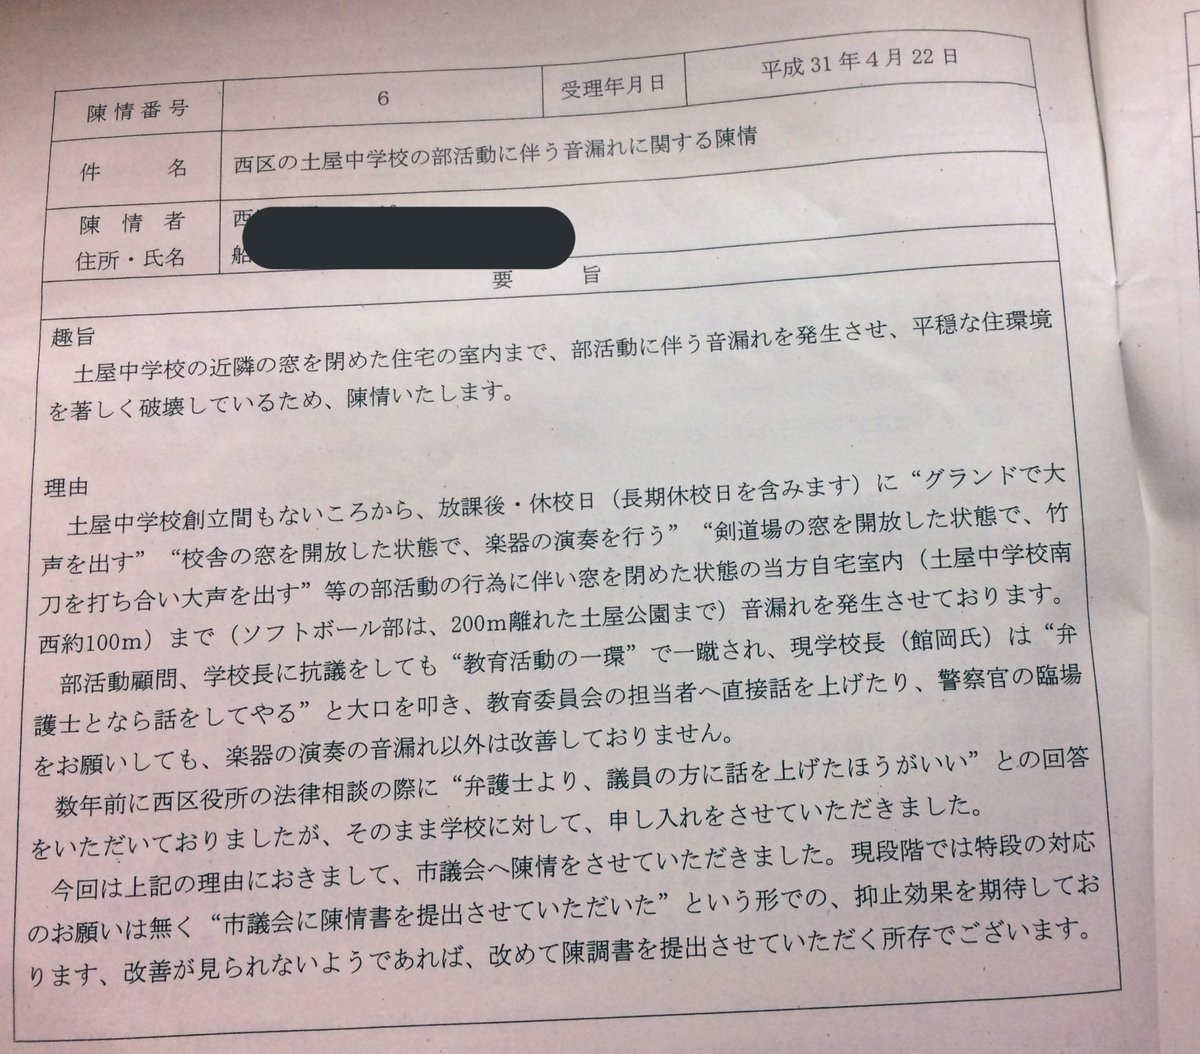 陳情番号 6 受理年月日 平成31年4月22日
件名 西区の土屋中学校の部活動に伴う音漏れに関する陳情
陳情者 西
住所・氏名 船
要旨
趣旨
土屋中学校の近隣の窓を閉めた住宅の室内まで、部活動に伴う音漏れを発生させ、平穏な住環境
を著しく破壊しているため、陳情いたします。
理由
土屋中学校創立間もないころから、放課後・休校日（長期休校日を含みます）に“グランドで大
声を出す”“校舎の窓を開放した状態で、楽器の演奏を行う”“剣道場の窓を開放した状態で、竹
刀を打ち合い大声を出す”等の部活動の行為に伴い窓を閉めた状態の当方自宅室内（土屋中学校南
西約100m）まで（ソフトボール部は、200m離れた土屋公園まで）音漏れを発生させております。
部活動顧問、学校長に抗議をしても“教育活動の一環”で一蹴され、現学校長（館岡氏）は“弁
護士となら話をしてやる”と大口を叩き、教育委員会の担当者へ直接話を上げたり、警察官の臨場
をお願いしても、楽器の演奏の音漏れ以外は改善しておりません。
数年前に西区役所の法律相談の際に“弁護士より、議員の方に話を上げたほうがいい”との回答
をいただいておりましたが、そのまま学校に対して、申し入れをさせていただきました。
今回は上記の理由におきまして、市議会へ陳情をさせていただきました。現段階では特段の対応
のお願いは無く“市議会に陳情書を提出させていただいた”という形での、抑止効果を期待してお
ります、改善が見られないようであれば、改めて陳調書を提出させていただく所存でございます。